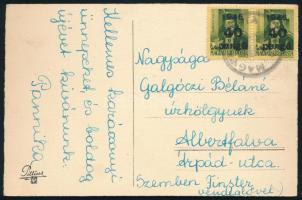 Kellemes karácsonyi
ünnepeket, és boldog
újévet kívánunk.
Pannika
Nagysága
Galgóczi Béláné
úrhölgynek
Albertfalva
Árpád-utca.
Szemben Finster
vendéglővel)